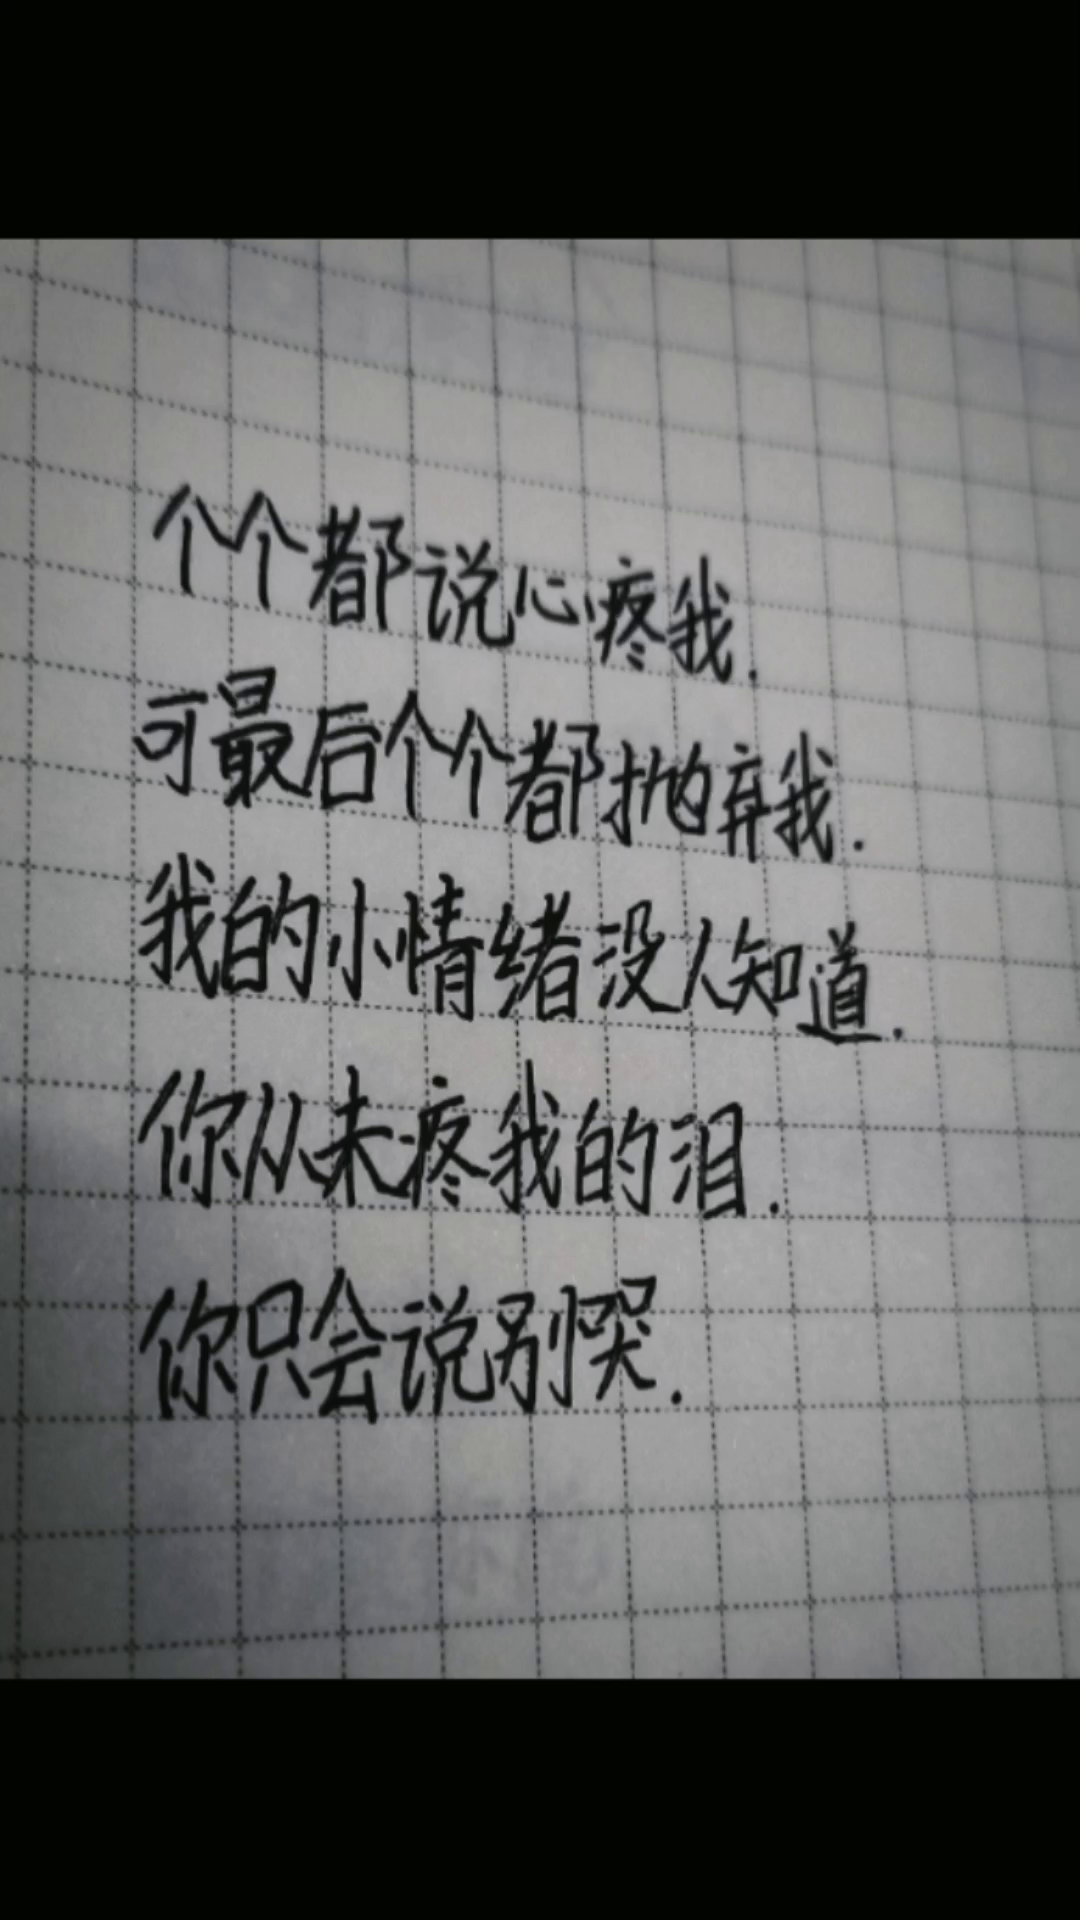 个个都说心疼我.
可最后个个都抛弃我.
我的小情绪没人知道.
你从未疼我的泪.
你只会说别哭.